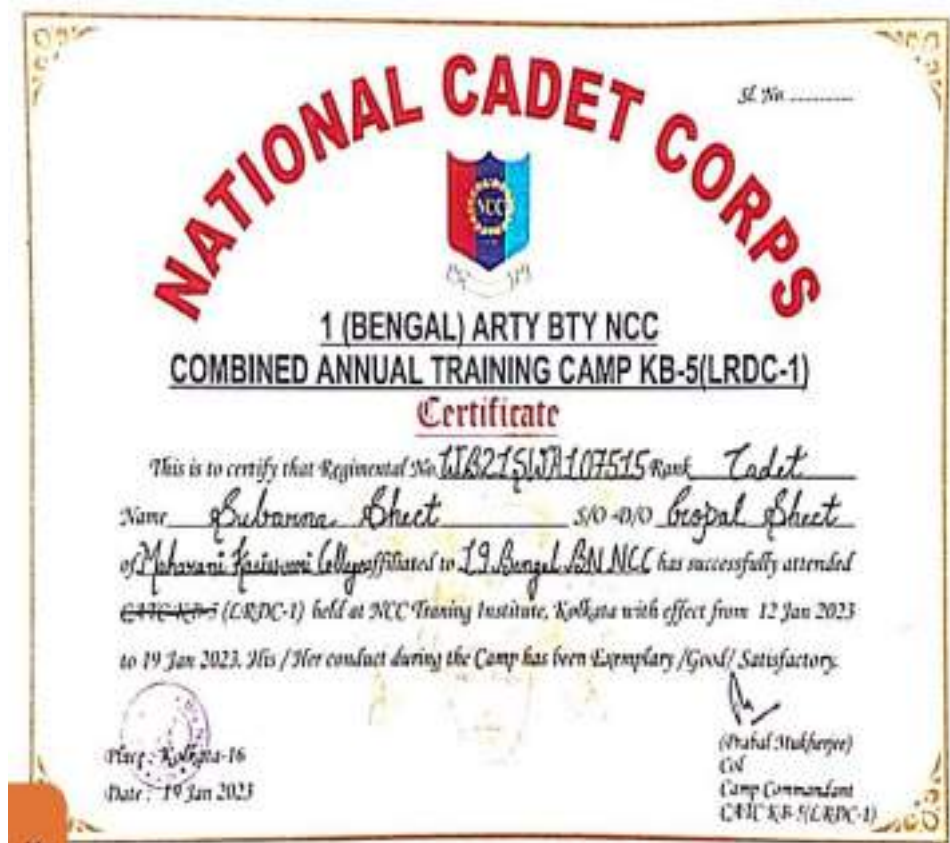 Sl. No. ............
NATIONAL CADET CORPS
NCC
1 (BENGAL) ARTY BTY NCC
COMBINED ANNUAL TRAINING CAMP KB-5(LRDC-1)
Certificate
This is to certify that Regimental No. WB21SWA107515 Rank Cadet
Name Subarna Sheet S/O -D/O Gopal Sheet
of Maharani Kasiswari College affiliated to 19 Bengal BN NCC has successfully attended
CATC KB-5 (LRDC-1) held at NCC Traning Institute, Kolkata with effect from 12 Jan 2023
to 19 Jan 2023. His / Her conduct during the Camp has been Exemplary /Good/ Satisfactory.
Place : Kolkata-16
Date : 19 Jan 2023
(Prabal Mukherjee)
Col
Camp Commandant
CATC KB-5(LRDC-1)